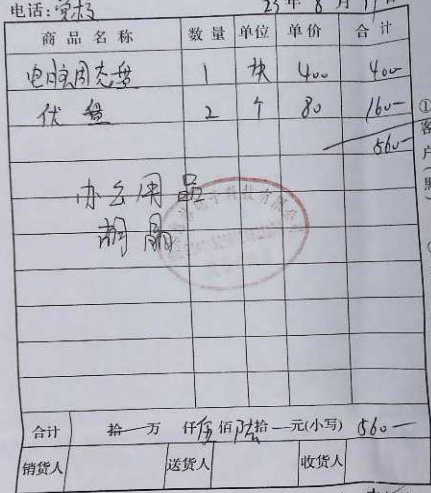 电话:党校 23年8月17日
商品名称 数量 单位 单价 合计
电脑固态盘 1 块 400 400
优盘 2 个 80 160-
560-
办公用品
合计 拾 — 万 仟 伍 佰 陆 拾 — 元(小写) 560-
销货人 送货人 收货人
①客户